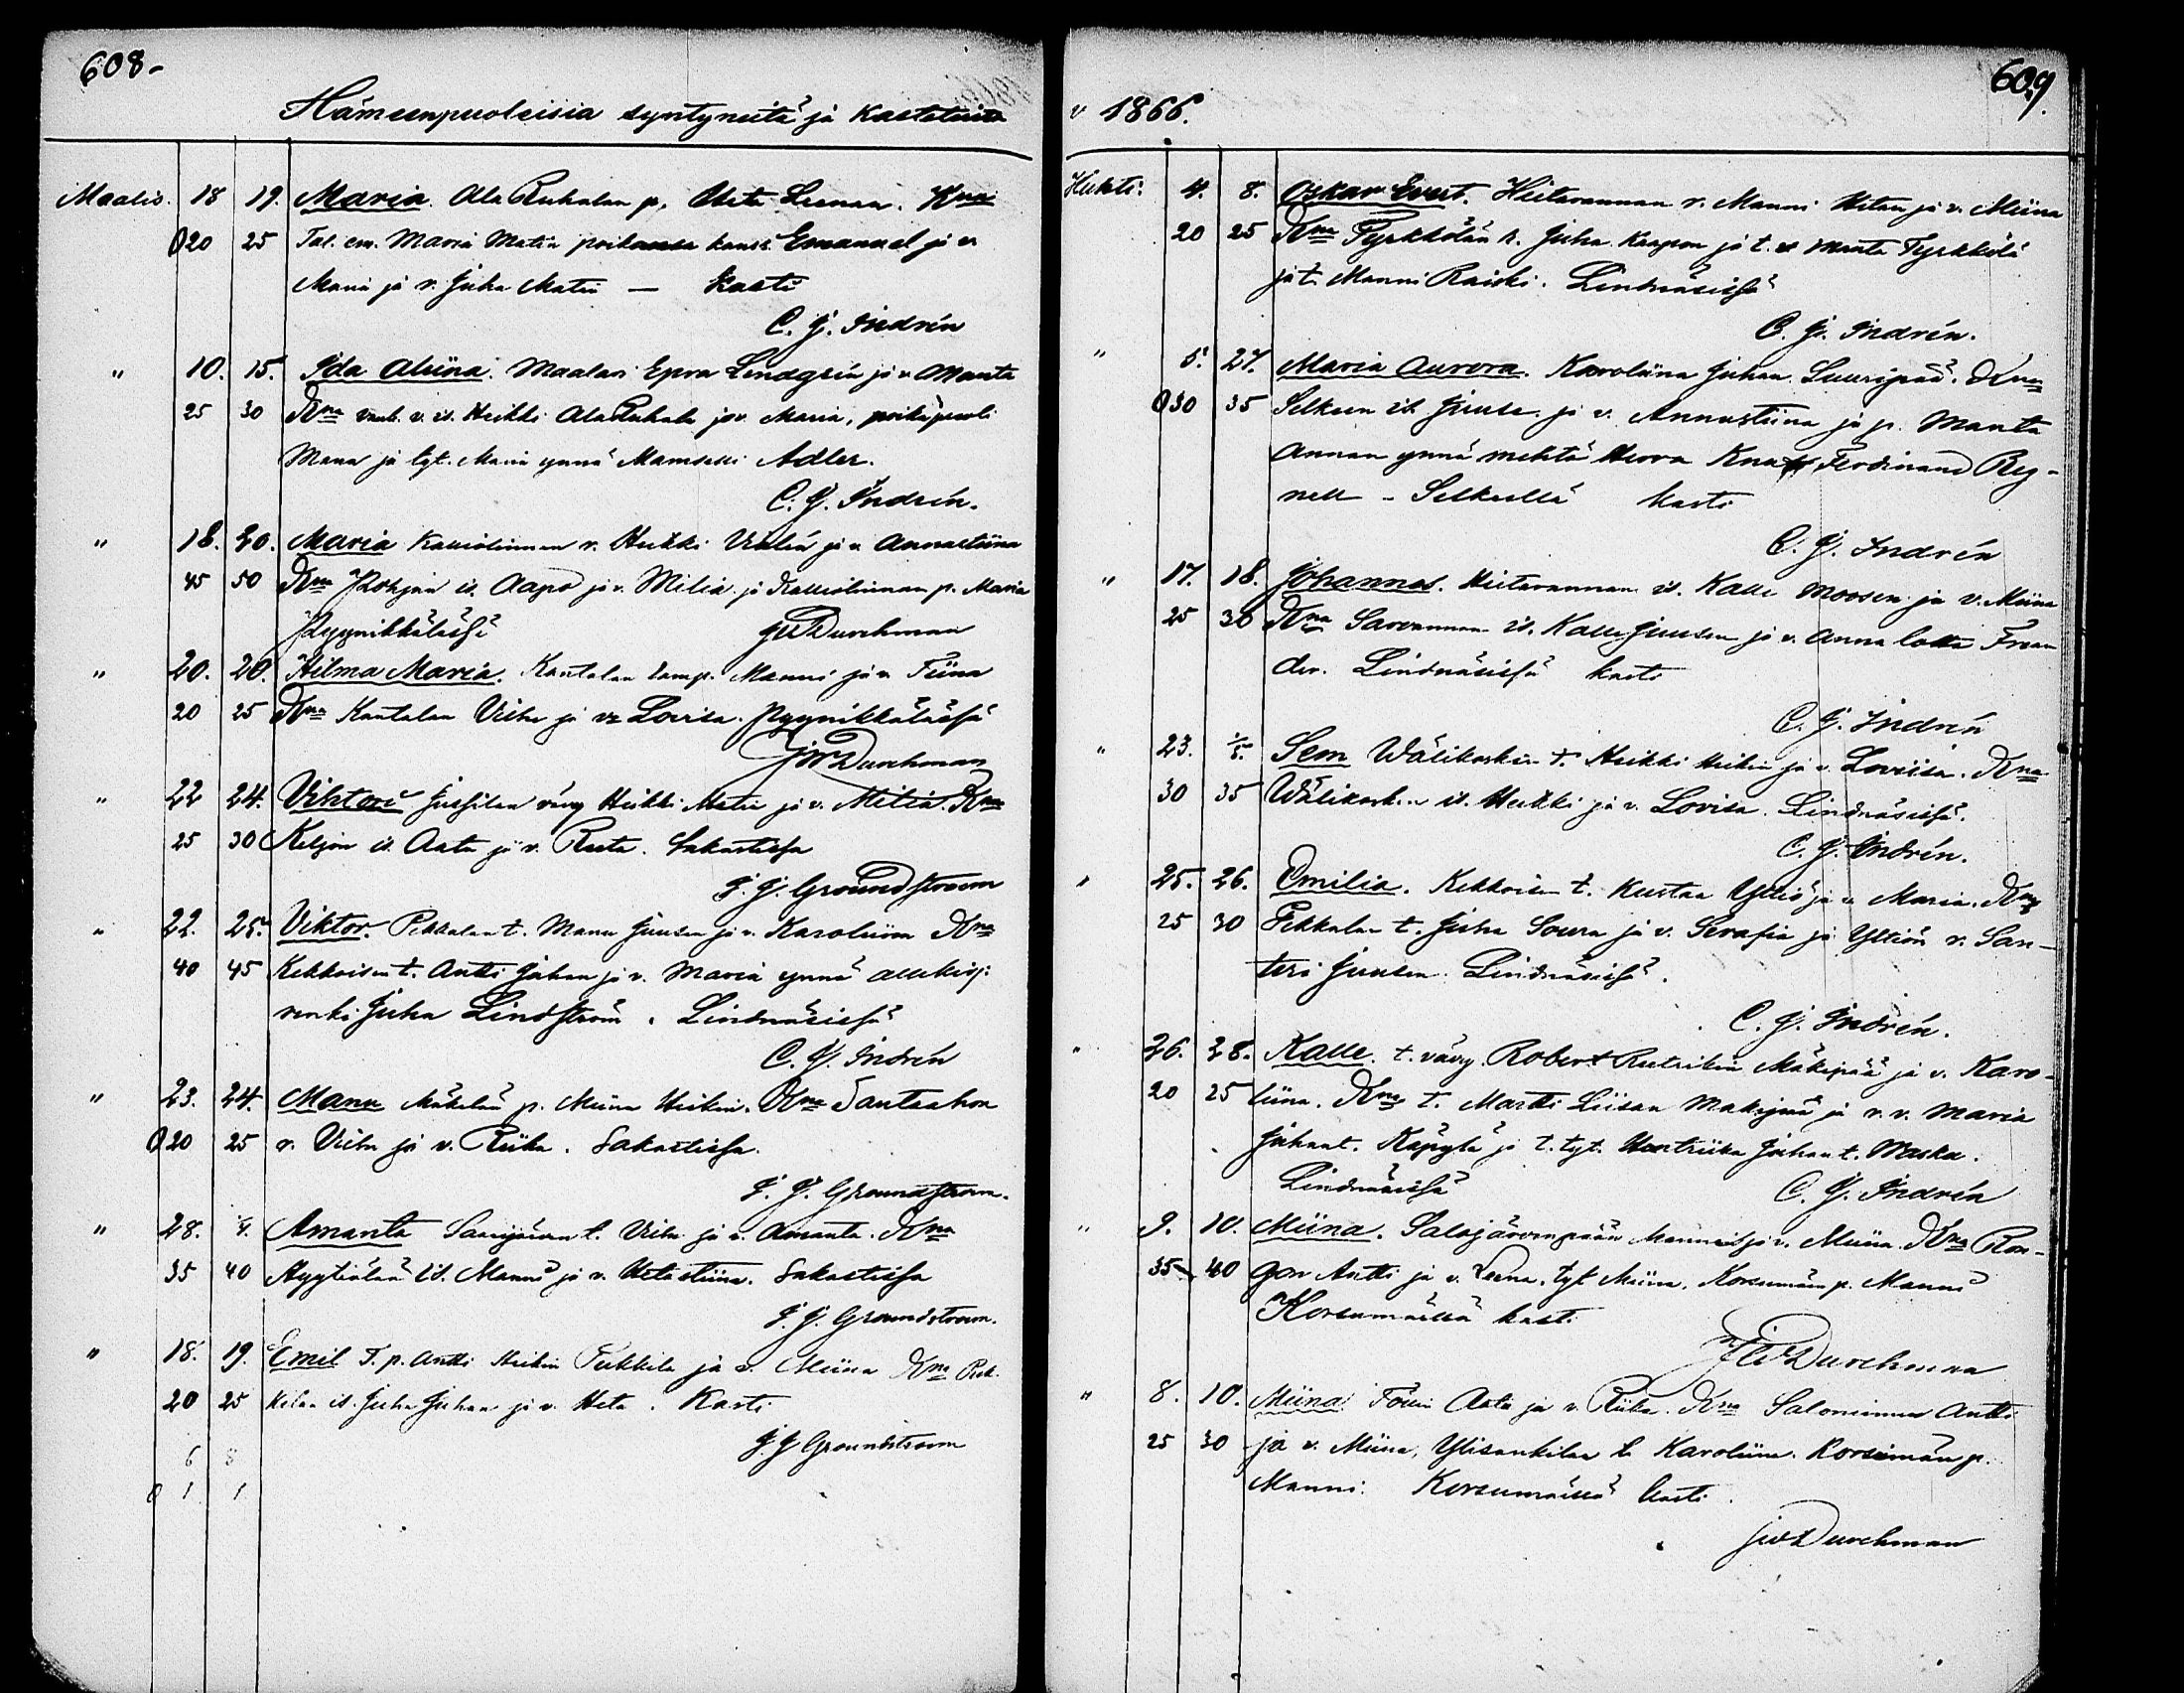 608-
Hämeenpuoleisia syntyneitä ja Kastetuita
Maalis. 18 19. Maria. Ala Ruhalan p. Heta Leenan. Kna
O20 25 Tal. em. Maria Matin poikansa kanss. Emanuel ja v.
Maria ja r. Juha Matin — kasti
C. G. Indrén
" 10. 15. Ida Aliina. Maalari Epra Lindgrén ja v. Manta
25 30 Kna v. is. Heikki AlaRuhala ja v. Maria, poikapuoli
Manu ja tyt. Maria ynnä Mamselli Adler.
C. G. Indrén.
" 18. 20. Maria Kalliolinnan r. Heikki ja v. Annastiina
45 50 Kna Pohjan is. Aapo ja v. Milia ja Kalliolinnan p. Maria
Pyynikkälässä JWDurchman
" 20. 20. Hilma Maria. Kantolan lamp. Manni ja v. Tiina
20 25 Kna Kantolan Vihu ja v. Lovisa. Pyynikkälässä
JWDurchman
" 22 24. Vihtori Jussilan vävy Heikki Matin ja v. Milia. Kna
25 30 Keljon is. Aatu ja v. Reeta. Sakastissa
J. G. Groundstroem
" 22. 25. Viktor. Pekkalan t. Manu Juusen ja v. Karoliina Kna
40 45 Kekkoisen t. Antti Juhan ja v. Maria ynnä
renki Juha Lindström. Lindnäsissä
C. G. Indrén
" 23. 24. Manu Mäkelän p. Miina Heikin. Kna Santaahon
O20 25 r. Vihu ja v. Riika. Sakastissa.
J. G. Groundstroem.
" 28. Amanta Saarijärven t. Vihu ja v. Amanta. Kna
35 40 Hyytiälän is. Manni ja v. Hetastiina. Sakastissa
J. G. Groundstroem.
" 18. 19. Emil T. p. Antti Heikin Pukkila ja v. Miina Kna Puk-
20 25 kilan is. Juha Juhan ja v. Heta. Kasti
J. G Groundstroem
6 8
0 1 1
609.
v 1866.
Huhti: 4. 8. Oskar Evert. Hiitarannan r. Manni Hetan ja v. Miina
20 25 Kna Pyrkkölän r. Juha Kaapon ja t. Manta Pyrkkölä
ja t. Manni Raiski. Lindnäsissä
C. G. Indrén.
" 5. 27. Maria Aurora. Karoliina Juhan Suuripää. Kna
O30 35 Selkeen is. Juuse ja v. Annastiina ja p. Manta
Annan ynnä mehtä Herra Knut Ferdinand Reg-
nell - Selkeellä kasti
C. G. Indrén
" 17. 18. Johannes. Hiitarannan is. Kalle Moosen ja v. Miina
25 30 Kna Sarvannan is. Kalle Juusen ja v. Anna lotta Fran
der. Lindnäsissä kasti
C. G. Indrén
" 23. 1/5. Sem Wälikosken t. Heikki Heikin ja v. Loviisa. Kna
30 35 Wälikosken is. Heikki ja v. Lovisa. Lindnäsissä.
C. G. Indrén.
" 25. 26. Emilia. Kekkoisen t. Kustaa Yttiö ja v. Maria. Kna
25 30 Pekkalan t. Juha Soura ja v. Serafia ja Yttiön r. San-
teri Juusen. Lindnäsissä.
C. G. Indrén.
" 26. 28. Kalle. t. vävy. Robert Reetrikin Mäkipää ja v. Karo-
20 25 liina. Kna t. Martti Liisan Mäkipää ja r. v. Maria
Juhant. Käpylä ja t. tyt. Juhant. Maska.
Lindnäsissä C. G. Indrén
" 9. 10. Miina. Salojärvenpään Manni ja v. Miina. Kna Ron-
35 40 gon Antti ja v. Leena, tyt Miina, Korsumäen p. Manni
Korsumäellä kasti
JWDurchman
" 8. 10. Miina Aatu ja v. Riika. Kna Saloniemen Antti
25 30 ja v. Miina, Ylisenkilan t. Karoliina. Korsumäen p.
Manni: Korsumäellä kasti.
JWDurchman